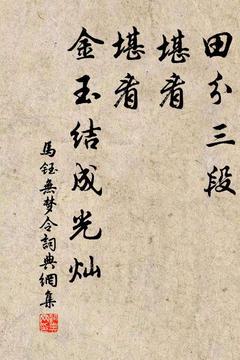 田分三段
堪看
堪看
金玉结成光灿
馬鈺無梦令詞典網集